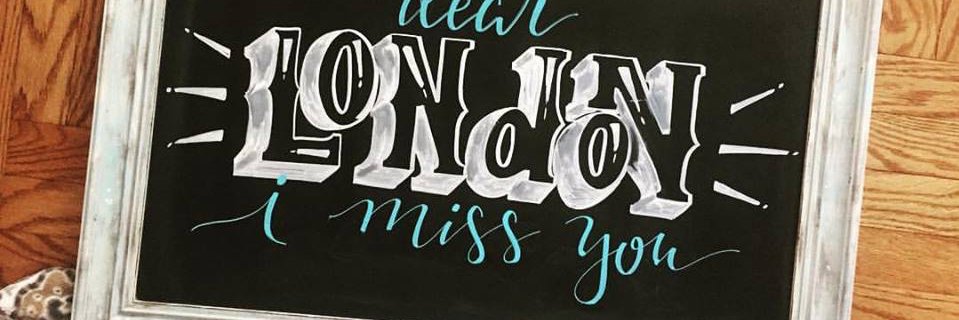 dear
LONdON
i miss you